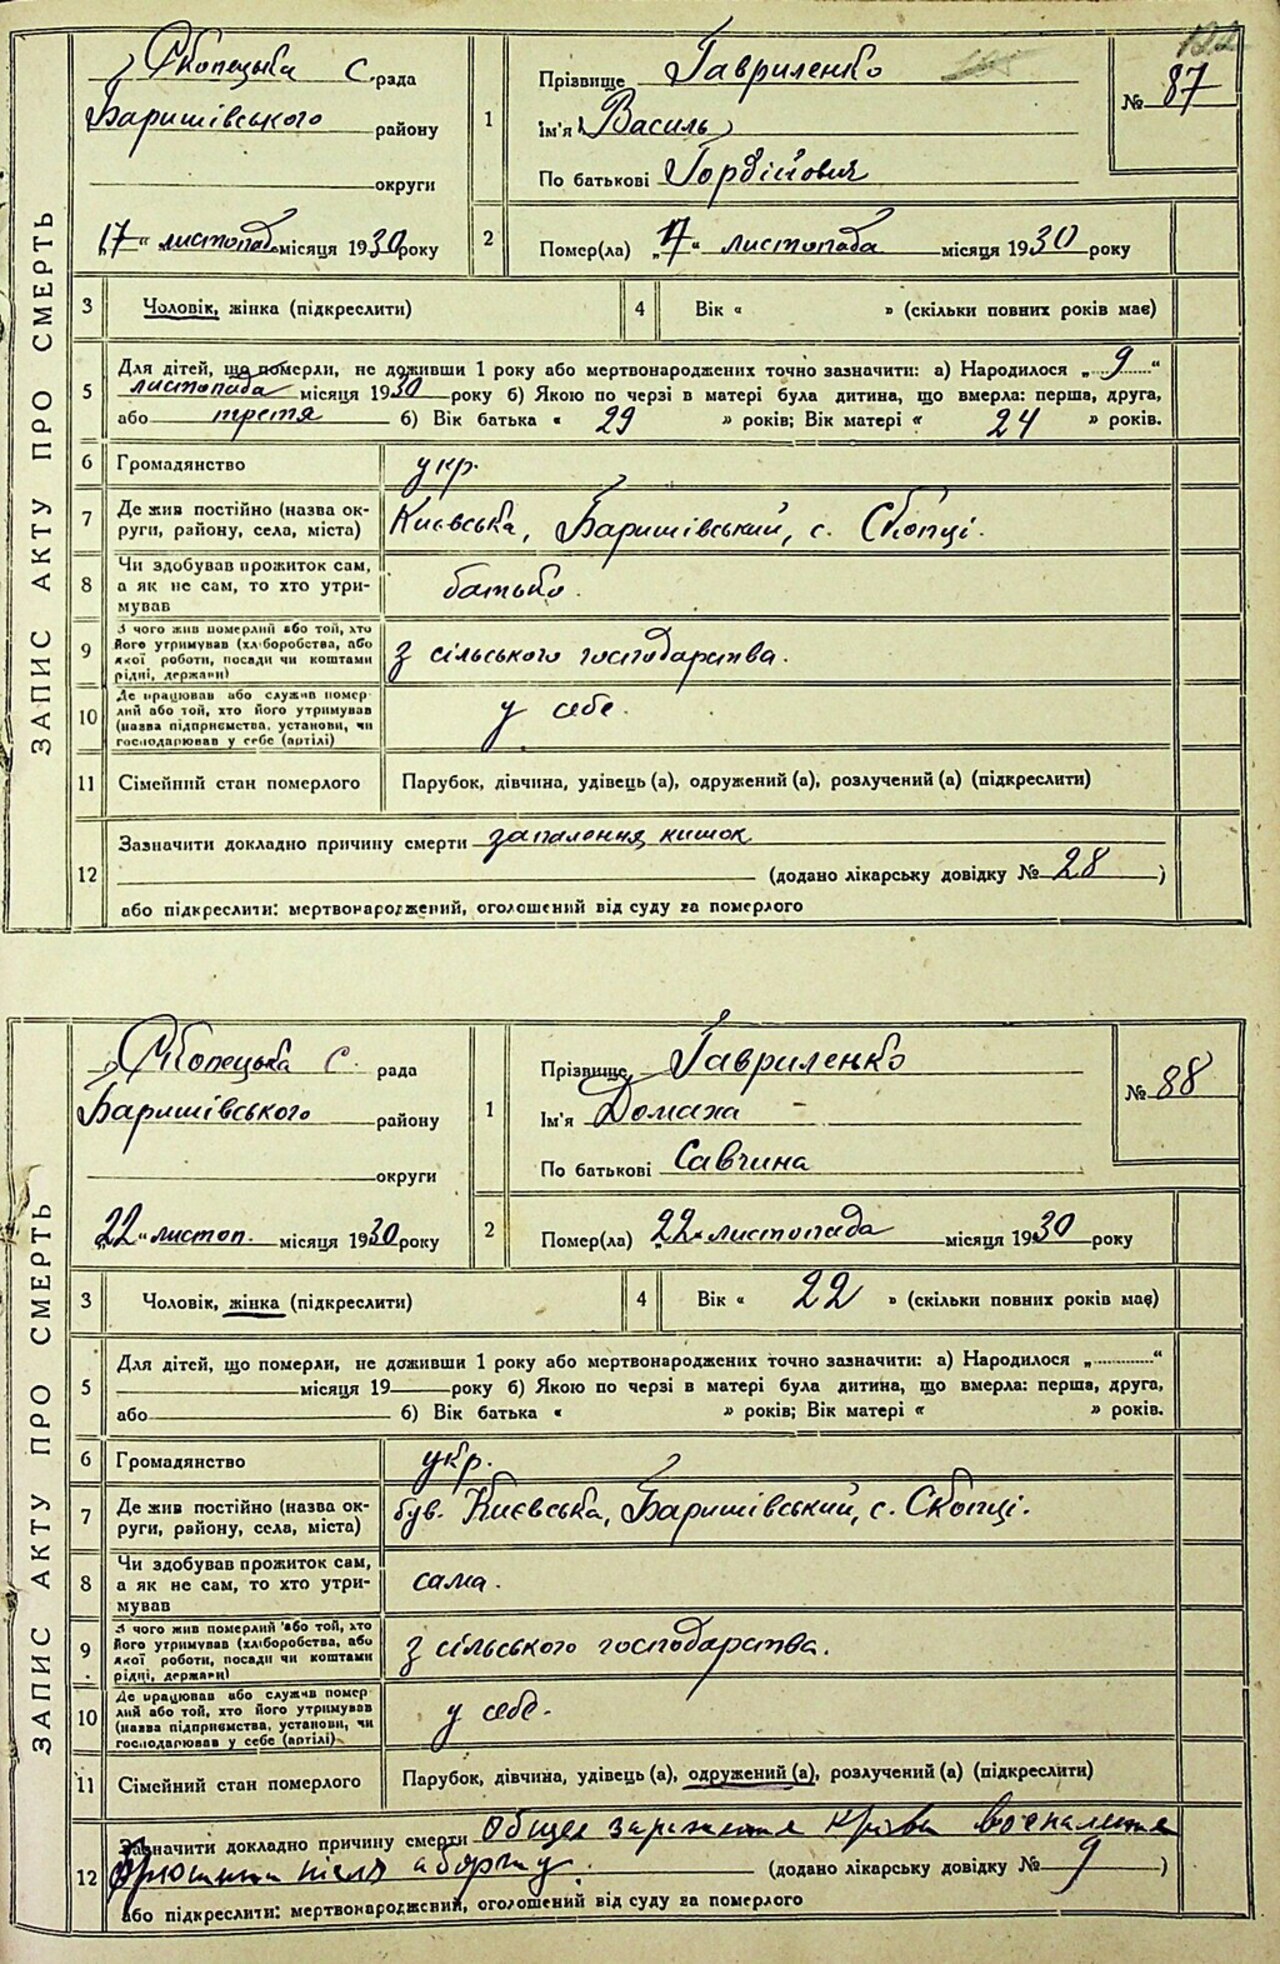 122
ЗАПИС АКТУ ПРО СМЕРТЬ
Скопецька с. рада
Баришівського району
округи
„17“ листопад. місяця 1930 року
1
Прізвище Гавриленко
Ім'я Василь
По батькові Гордійович
№ 87
2
Помер(ла) „17“ листопада місяця 1930 року
3 Чоловік, жінка (підкреслити)
4 Вік « » (скільки повних років має)
5 Для дітей, що померли, не доживши 1 року або мертвонароджених точно зазначити: а) Народилося „9“
листопада місяця 1930 року б) Якою по черзі в матері була дитина, що вмерла: перша, друга,
або третя б) Вік батька « 29 » років; Вік матері « 24 » років.
6 Громадянство укр.
7 Де жив постійно (назва ок-
руги, району, села, міста) Києвська, Баришівський, с. Скопці.
8 Чи здобував прожиток сам,
а як не сам, то хто утри-
мував батько.
9 З чого жив померлий або той, хто
його утримував (хліборобства, або
якої роботи, посади чи коштами
рідні, держави) з сільського господарства.
10 Де працював або служив помер-
лий або той, хто його утримував
(назва підприємства, установи, чи
господарював у себе (артілі) у себе.
11 Сімейний стан померлого Парубок, дівчина, удівець (а), одружений (а), розлучений (а) (підкреслити)
12 Зазначити докладно причину смерти запалення кишок
(додано лікарську довідку № 28)
або підкреслити: мертвонароджений, оголошений від суду за померлого
ЗАПИС АКТУ ПРО СМЕРТЬ
Скопецька с. рада
Баришівського району
округи
„22“ листоп. місяця 1930 року
1
Прізвище Гавриленко
Ім'я Домаха
По батькові Савчина
№ 88
2
Помер(ла) „22“ листопада місяця 1930 року
3 Чоловік, жінка (підкреслити)
4 Вік « 22 » (скільки повних років має)
5 Для дітей, що померли, не доживши 1 року або мертвонароджених точно зазначити: а) Народилося „ “
місяця 19 року б) Якою по черзі в матері була дитина, що вмерла: перша, друга,
або б) Вік батька « » років; Вік матері « » років.
6 Громадянство укр.
7 Де жив постійно (назва ок-
руги, району, села, міста) був. Києвська, Баришівський, с. Скопці.
8 Чи здобував прожиток сам,
а як не сам, то хто утри-
мував сама.
9 З чого жив померлий або той, хто
його утримував (хліборобства, або
якої роботи, посади чи коштами
рідні, держави) з сільського господарства.
10 Де працював або служив помер-
лий або той, хто його утримував
(назва підприємства, установи, чи
господарював у себе (артілі) у себе.
11 Сімейний стан померлого Парубок, дівчина, удівець (а), одружений (а), розлучений (а) (підкреслити)
12 Зазначити докладно причину смерти Общее заражение крови воспаление
брюшины після аборту.
(додано лікарську довідку № 9)
або підкреслити: мертвонароджений, оголошений від суду за померлого